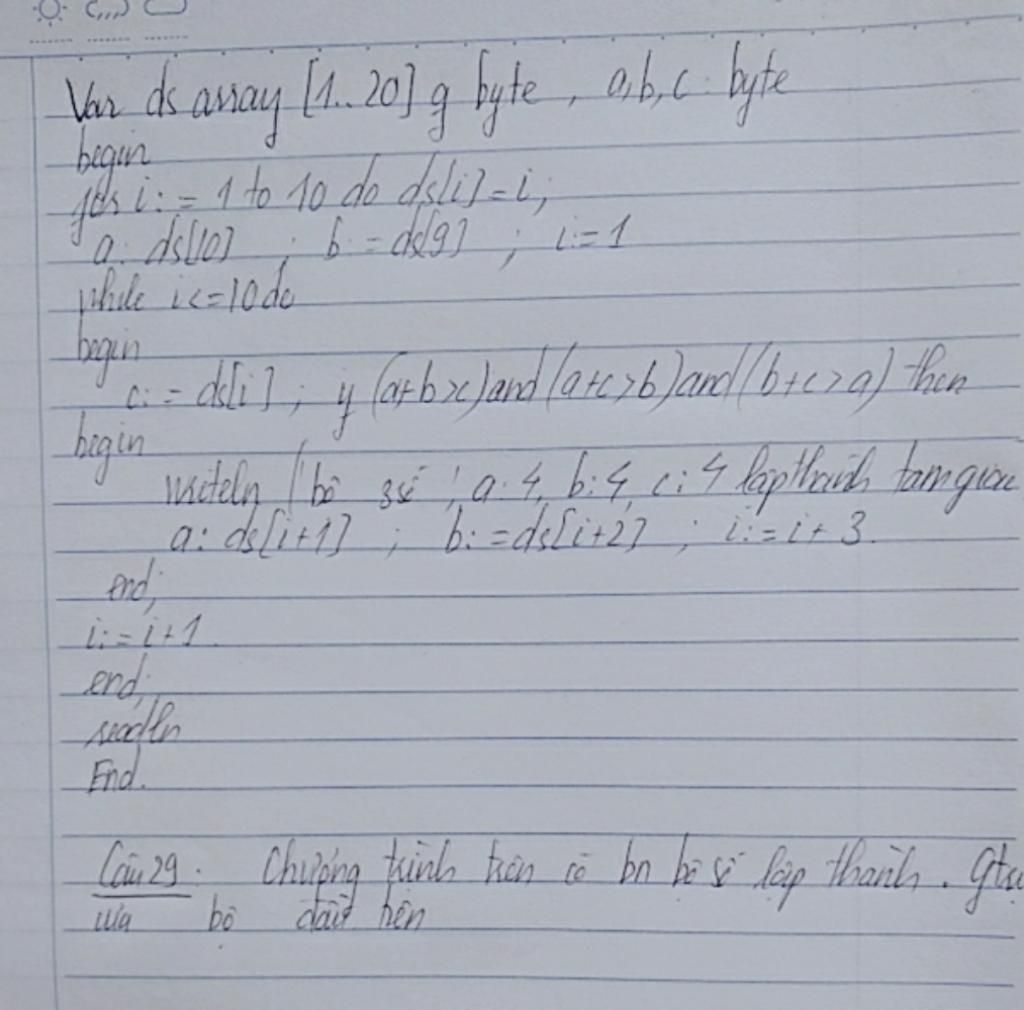 Var ds array [1..20] of byte, a,b,c: byte
begin
for i:=1 to 10 do ds[i]=i;
a: ds[10] ; b:=ds[9] ; i:=1
while i<=10 do
begin
c:=ds[i]; if (a+b>c)and(a+c>b)and(b+c>a) then
begin
writeln ('bô 3 số', a:4, b:4, c:4 lập thành tam giác
a: ds[i+1] ; b:=ds[i+2] ; i:=i+3.
end;
i:=i+1.
end;
readln
End.
Câu 29. Chương trình trên có bn bộ số lập thành. Gtrị
của bộ đầu tiên